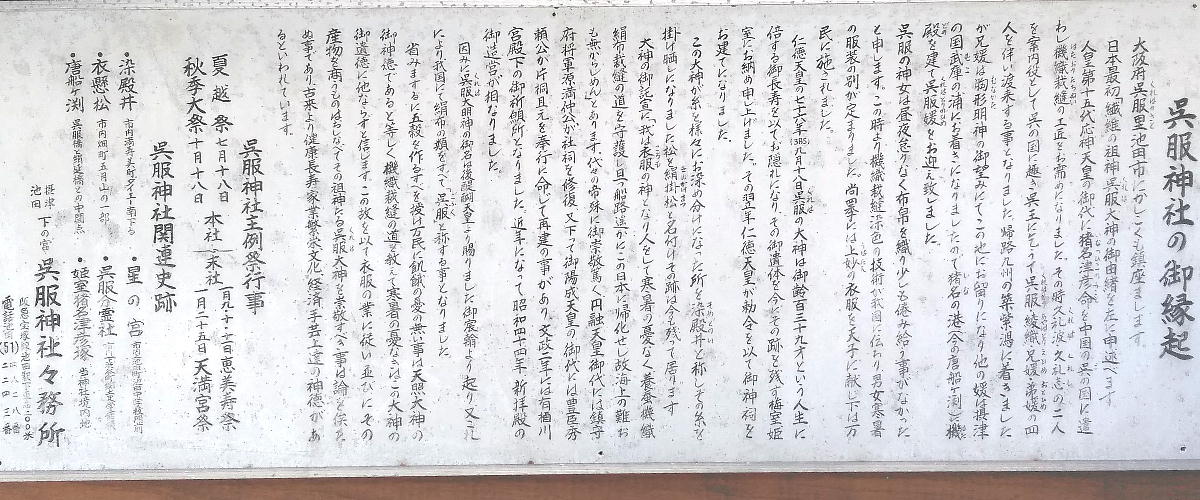 呉服神社の御縁起
大阪府呉服里池田市にかしこくも鎮座まします。
日本最初「繊維の祖神」呉服大神の御由緒を左に申述べます
人皇第十五代応神天皇の御代に猪名津彦命を中国の呉の国に遣
わし機織裁縫の工匠をお需めになりました。その時久礼波久礼志の二人
を案内役として呉の国に趣き呉王に乞うて呉服綾織兄媛弟媛の四
人を伴い渡来する事となりました。帰路九州の築紫潟に着きました
が兄媛は胸形明神の御望みにてこの地にお留りになり他の媛は摂津
の国武庫の浦にお着きになりましたので猪名の港(今の唐船ヶ渕)に機
殿を建て呉服媛をお迎え致しました
呉服の神女は昼夜怠りなく布帛を織り少しも倦み給う事がなかった
と申します。この時より機織裁縫染色の技術が我国に伝わり男女寒暑
の服装の別が定まりました。尚畢には上妙の衣服を天子に献じ下は万
民に施されました。
仁徳天皇の七十六年(385)九月十八日呉服の大神は御齢百三十九才という人生に
倍する御長寿を以てお隠れになり、その御遺体を今にその跡を残す梅室姫
室にお納め申し上げました。その翌年仁徳天皇が勅令を以て御神祠を
お建てになりました。
この大神が糸を様々にお染め分けになった所を染殿井と称しその糸を
掛け晒しになりました松を絹掛松と名付けその跡は今も残って居ります
大神の御託宣に「我は衣服の神となり人をして寒暑の憂なく養蚕機織
絹布裁縫の道を守護し且つ船路遥かにこの日本に帰化せし故海上の難お
も無からしめんとあります。代々の帝殊に御崇敬篤く円融天皇御代には鎮守
府将軍源満仲公が社祠を修復又下って御陽成天皇の御代には豊臣秀
頼公が片桐且元を奉行に命じて再建の事があり、文政二年には有栖川
宮殿下の御祈願所となりました。近年になって昭和四十四年新拝殿の
御造営が相なりました。
因みに呉服大明神の御名は後醍醐天皇より賜りました御宸翰より起り又これ
により我国にて絹布の類をすべて「呉服」と称する事となりました
省みまするに五穀を作るすべを授け万民に飢餓の憂の無い事は天照大神の
御神徳であると等しく機織裁縫の道を教えて寒暑の憂なきはこの大神の
御遺徳に他ならずと信じます。この故を以て衣服の業に従い並びにその
産物を商うものはあしなべてその祖神たる呉服大神を崇敬すべき事は論を俟た
ぬ事であり古来より健康長寿家業繁栄文化経済手芸上達の神徳があ
るといわれています。
呉服神社主例祭行事
夏越祭 七月十八日
秋季大祭 十月十八日
本社 末社
一月九・十・十一日 恵美寿祭
一月二十五日 天満宮祭
呉服神社関連史跡
・染殿井 市内満寿美町
・衣懸松 市内畑町五月山の一部
・唐船ヶ渕 呉服橋と絹延橋との中間点
・星の宮
・呉服分霊社
・姫室猪名津彦塚 当神社境内地
摂津
池田
下の宮
呉服神社々務所
電話池田(51)二二四三番